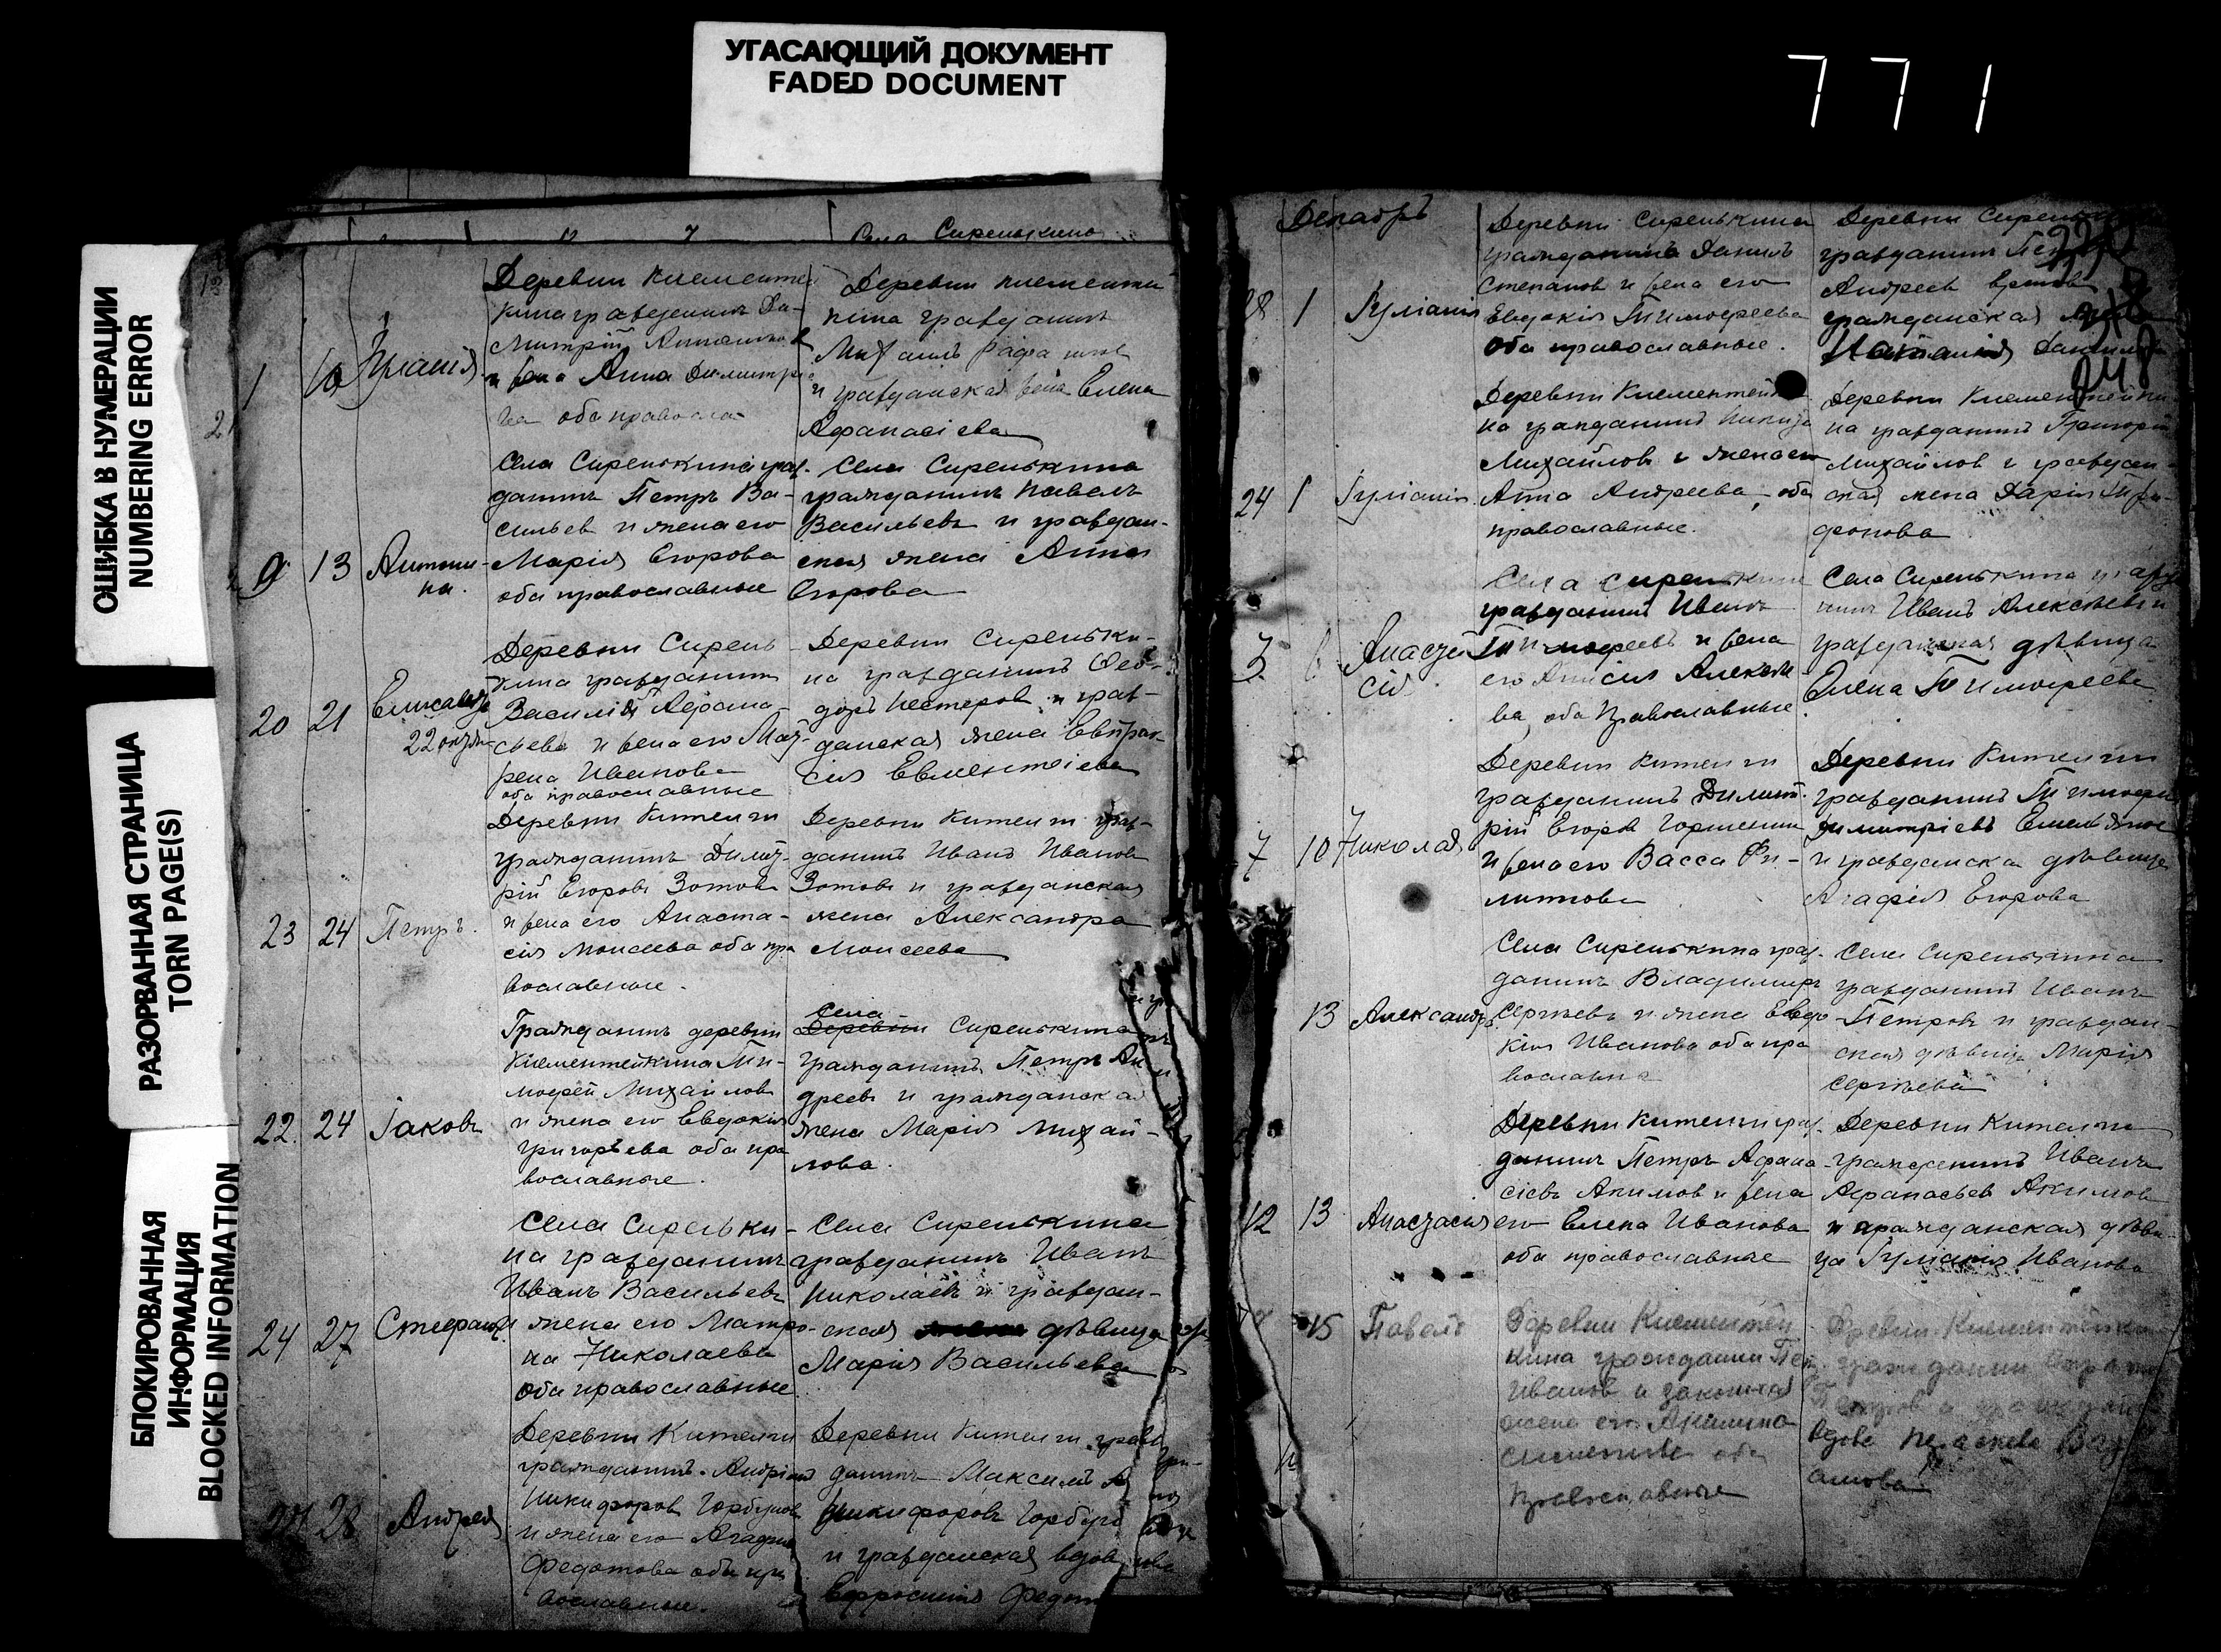 УГАСАЮЩИЙ ДОКУМЕНТ
FADED DOCUMENT
771
ОШИБКА В НУМЕРАЦИИ
NUMBERING ERROR
РАЗОРВАННАЯ СТРАНИЦА
TORN PAGE(S)
БЛОКИРОВАННАЯ
ИНФОРМАЦИЯ
BLOCKED INFORMATION
Села Сиренькина
Деревни Клементей
кина гражданинъ Ди-
митрій
и жена Анна Димитріе
ва оба правосла
Деревни Клементей
кина гражданинъ
Михаилъ
и гражданская жена Елена
Афанасіева
9 13 Антони-
на.
Села Сиренькина граж-
данинъ Петръ Ва-
сильев и жена его
Марія Егорова
оба православные
Села Сиренькина
гражданинъ Павелъ
Васильевъ и граждан-
ская жена Анна
Егорова
20 21 Елисавета
22 октяб
Деревни Сирень
кина гражданинъ
Василій Афана-
сьевъ и жена его Мат-
рена Иванова
оба православные
Деревни Сиреньки-
на гражданинъ Фео-
доръ Нестеров и граж-
данская жена Евпрак-
сія
23 24 Петръ.
Деревни Кителги
гражданинъ Димит-
рій Егоровъ Зотовъ
и жена его Анаста-
сія Моисеева оба пра
вославные.
Деревни Кителги граж-
данинъ Иванъ Иванов
Зотовъ и гражданская
жена Александра
Моисеева
22. 24 Іаковъ
Гражданинъ деревни
Клементейкина Ти-
мофей Михайлов
и жена его Евдокія
Григорьева оба пра
вославные.
Села
Деревни Сиренькина
гражданинъ Петръ Ан
дреевъ и гражданская
жена Марія Михай-
лова.
24 27 Стефанъ
Села Сиреньки-
на гражданинъ
Иванъ Васильевъ
и жена его Матро-
на Николаева
оба православные
Села Сиренькина
гражданинъ Иванъ
Николаевъ и граждан-
ская жена дѣвица
Марія Васильева
28 Андрей
Деревни Кителги
гражданинъ Андріанъ
Никифоров Горбунов
и жена его Агафія
Федотова оба пра
вославные.
Деревни Кителги граж
данинъ Максимъ
Никифоровъ Горбуно
и гражданская вдов
Евфросинія Федот
Декабрь
28 1 Іуліанія
Деревни Сиренькина
гражданинъ Данилъ
Степанов и жена его
Евдокія Тимофеева
оба православные.
Деревни Сирень
гражданинъ
Андреев
гражданская
Наталия Данилов
24 1 Іуліанія.
Деревни Клементейки
на гражданинъ Никита
Михайловъ и жена его
Анна Андреева, оба
православные.
Деревни Клементейки-
на гражданинъ Григорій
Михайлов и граждан-
ская жена Дарія Три-
фонова
3 6 Анаста
сія.
Села Сиренькина
гражданинъ Иванъ
Тимофеевъ и жена
его Анисія Алексѣе
ва, оба православные.
Села Сиренькина гражда
нинъ Иванъ Алексѣевъ и
гражданская дѣвица
Елена Тимофеева
7 10 Николай
Деревни Кителги
гражданинъ Димит-
рій Егоров Горшенин
и жена его Васса Фи-
липпова
Деревни Кителги
гражданинъ Тимофей
Димитріевъ Емельянов
и гражданска дѣвица
Агафія Егорова
13 Александръ
Села Сиренькина граж-
данинъ Владимиръ
Сергѣевъ и жена Евдо-
кія Иванова оба пра
вославные
Села Сиренькина
гражданинъ Иванъ
Петровъ и граждан-
ская дѣвица Марія
Сергѣева
12 13 Анастасія
Деревни Кителги граж-
данинъ Петръ Афана-
сіевъ Акимов и жена
его Елена Иванова
оба православные
Деревни Кителги
гражданинъ Иванъ
Афанасьев Акимов
и гражданская дѣви-
ца Іуліанія Иванова
15 Павелъ
Деревни Клементей
кина гражданин Петр
Иванов и законная
жена его Акилина
Симеонова оба
православные
Деревни Клементейки
гражданин
Петров и граждан
вдова